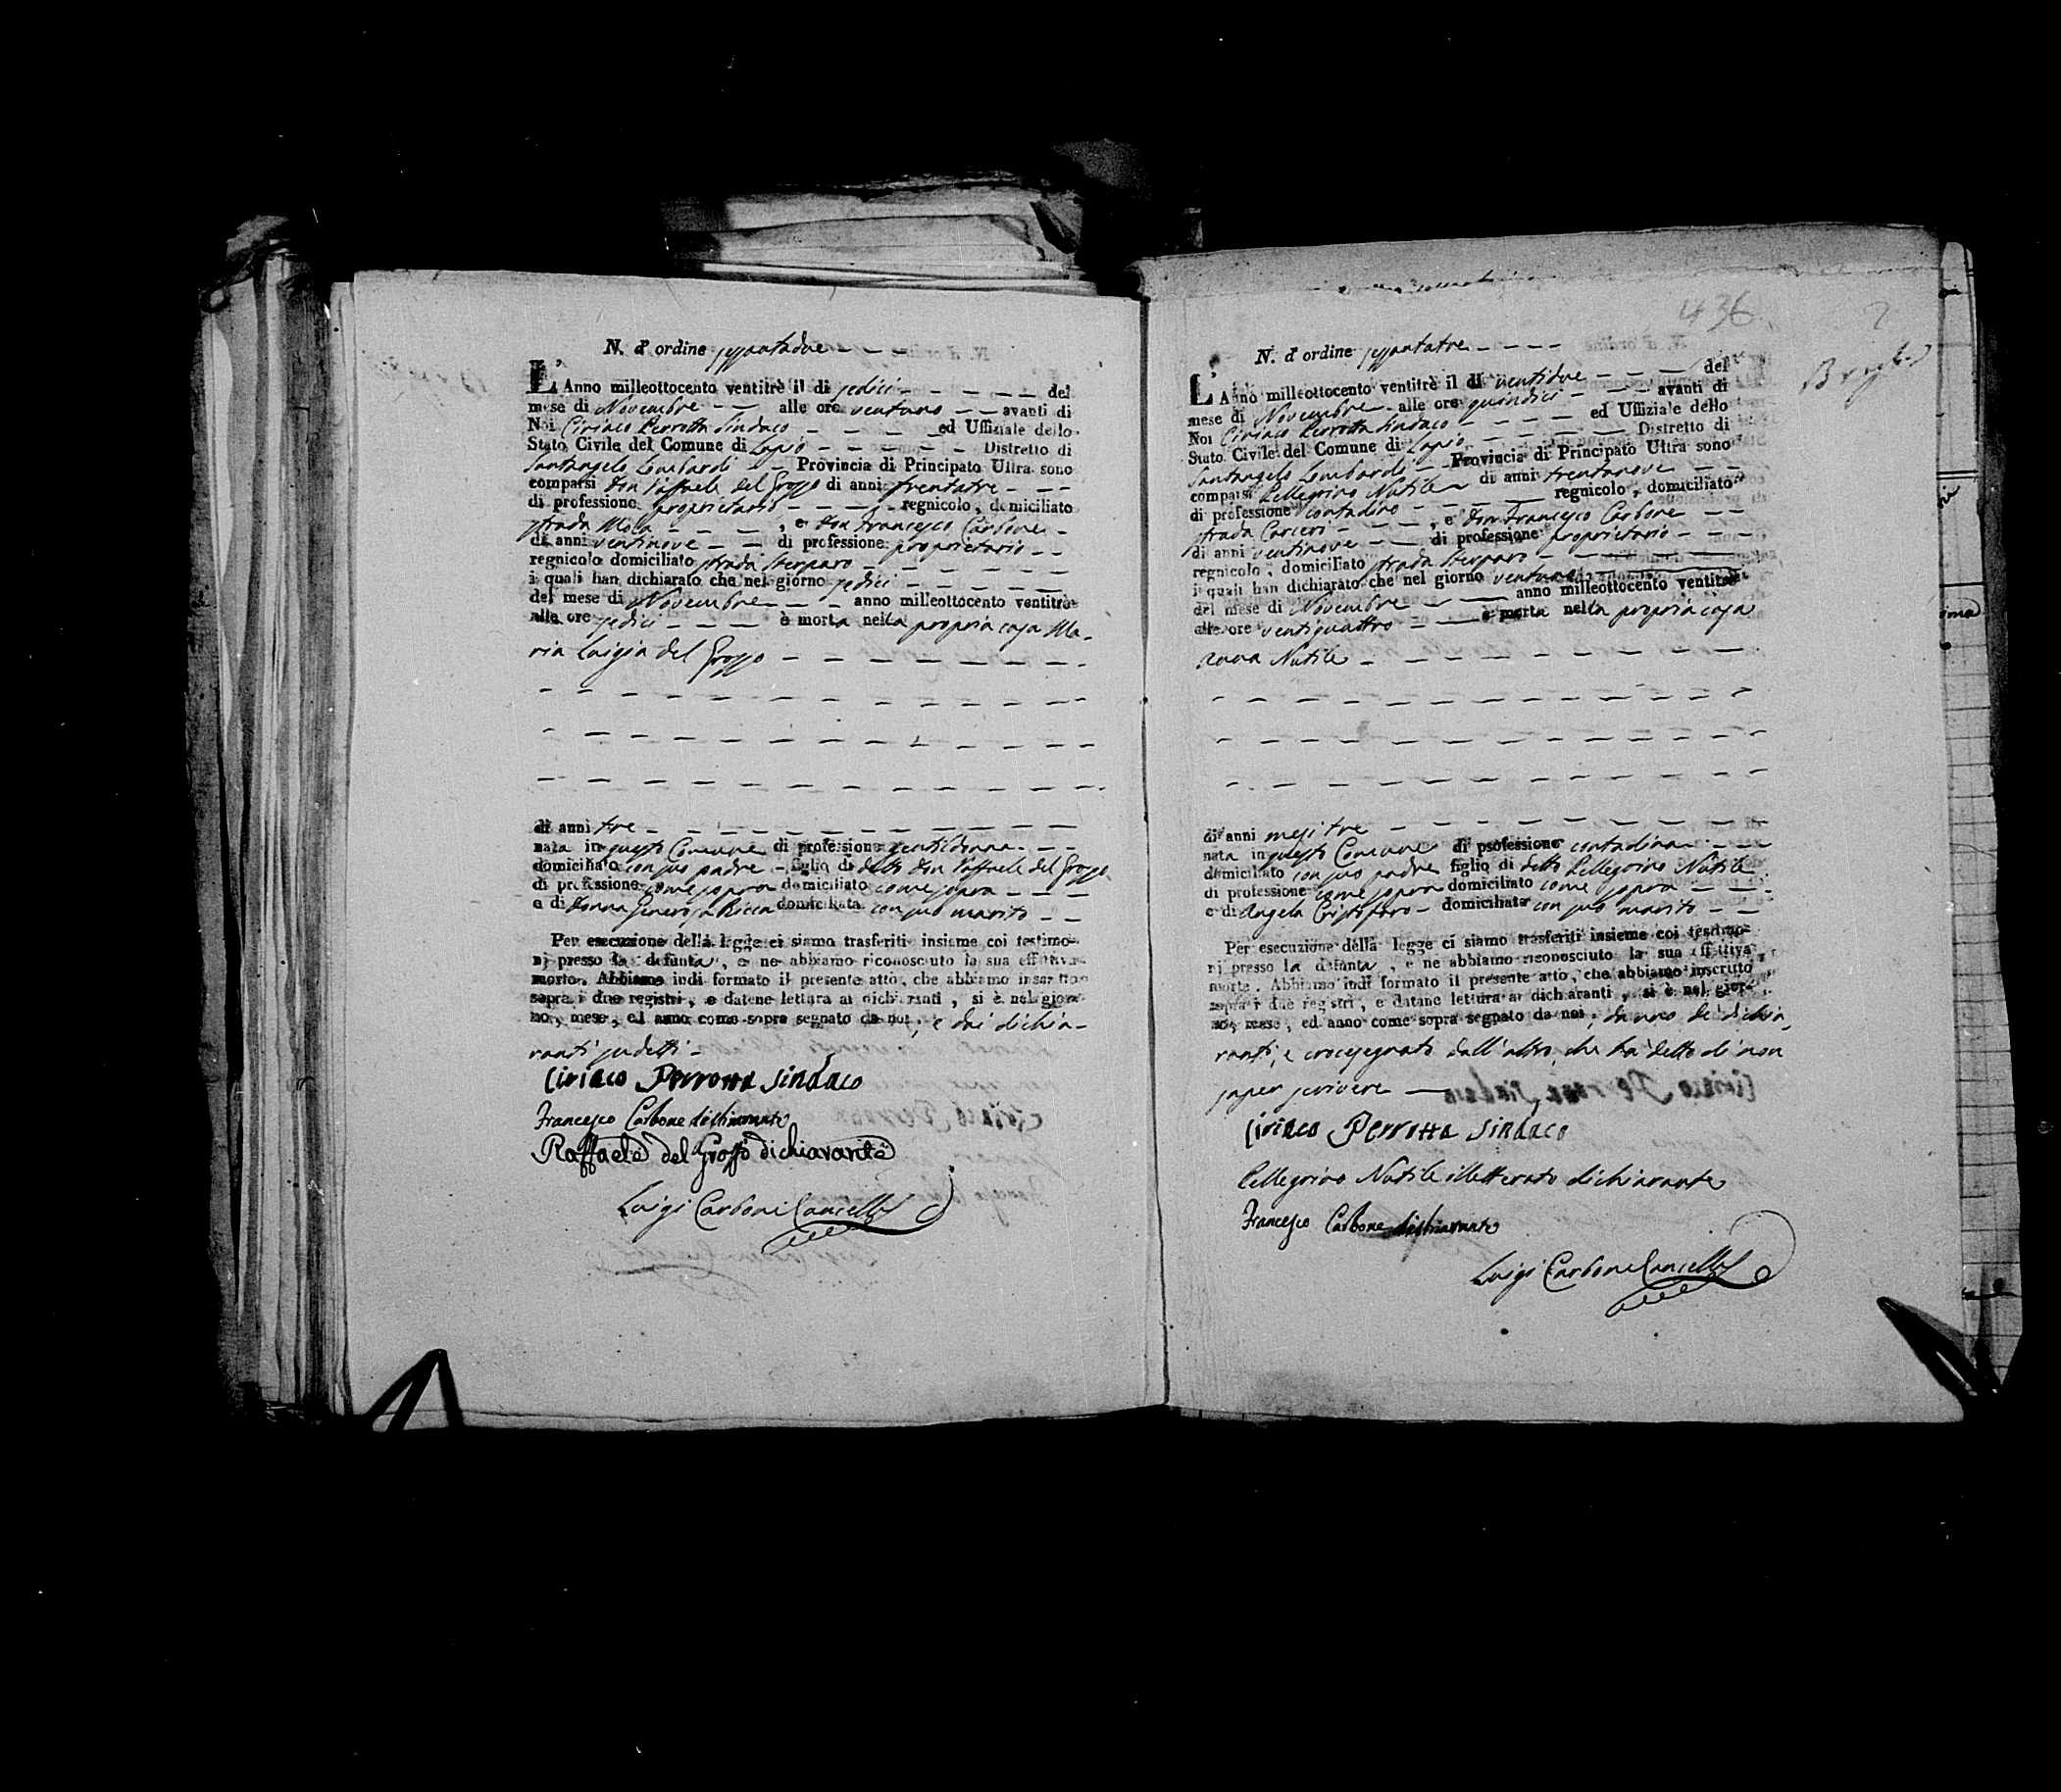 N. d' ordine sessantadue
L' Anno milleottocento ventitrè il di sedici del
mese di Novembre alle ore ventuno avanti di
Noi Ciriaco Perrotta Sindaco ed Uffiziale dello
Stato Civile del Comune di Lapio Distretto di
Santangelo Lombardi Provincia di Principato Ultra sono
comparsi Don Raffaele del Grosso di anni trentatre
di professione proprietario regnicolo, domiciliato
strada Mola, e Don Francesco Carbone
di anni ventinove di professione proprietario
regnicolo domiciliato strada Sterparo
i quali han dichiarato che nel giorno sedici
del mese di Novembre anno milleottocento ventitrè
alle ore sedici è morta nella propria casa Ma-
ria Luigia del Grosso
di anni tre
nata in questo Comune di professione gentildonna
domiciliato con suo padre figlio di detto Don Raffaele del Grosso
di professione come sopra domiciliato come sopra
e di Donna Generosa Ricca domiciliata con suo marito
Per esecuzione della legge ci siamo trasferiti insieme coi testimo-
nj presso la defunta, e ne abbiamo riconosciuto la sua effettiva
morte. Abbiamo indi formato il presente atto, che abbiamo inscritto
sopra i due registri, e datene lettura ai dichiaranti, si è nel gior-
no, mese, ed anno come sopra segnato da noi, e dai dichia-
ranti sudetti
Ciriaco Perrotta Sindaco
Francesco Carbone dichiarante
Raffaele del Grosso dichiarante
Luigi Carbone Cancell
436
N. d' ordine sessantatre
L' Anno milleottocento ventitrè il di ventidue del
mese di Novembre alle ore quindici avanti di
Noi Ciriaco Perrotta Sindaco ed Uffiziale dello
Stato Civile del Comune di Lapio Distretto di
Santangelo Lombardi Provincia di Principato Ultra sono
comparsi Pellegrino Nutile di anni trentanove
di professione contadino regnicolo, domiciliato
strada Carceri, e Don Francesco Carbone
di anni ventinove di professione proprietario
regnicolo, domiciliato strada Sterparo
i quali han dichiarato che nel giorno ventuno
del mese di Novembre anno milleottocento ventitrè
alle ore ventiquattro è morta nella propria casa
Anna Nutile
di anni mesi tre
nata in questo Comune di psofessione contadina
domiciliato con suo padre figlio di detto Pellegrino Nutile
di professione come sopra domiciliato come sopra
e di Angela Cristoforo domiciliata con suo marito
Per esecuzione della legge ci siamo trasferiti insieme coi testimo-
nj presso la defunta, e ne abbiamo riconosciuto la sua effettiva
morte. Abbiamo indi formato il presente atto, che abbiamo inscritto
sopra i due registri, e datane lettura ai dichiaranti, si è nel gior-
no, mese, ed anno come sopra segnato da noi, da uno de' dichia-
ranti, e crocesegnato dall' altro, che ha detto di non
saper scrivere
Ciriaco Perrotta Sindaco
Pellegrino Nutile illetterato dichiarante
Francesco Carbone dichiarante
Luigi Carbone Cancell